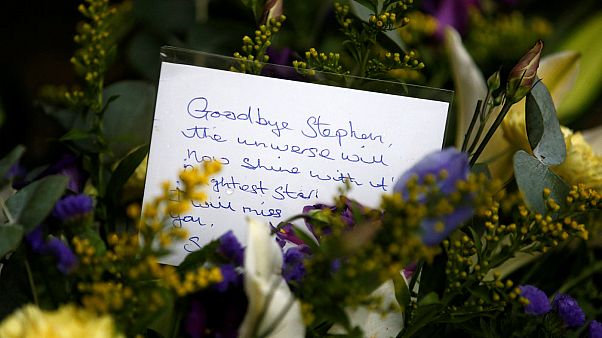 Goodbye Stephen,
the universe will
now shine with it'
brightest star.
I will miss
you.
S